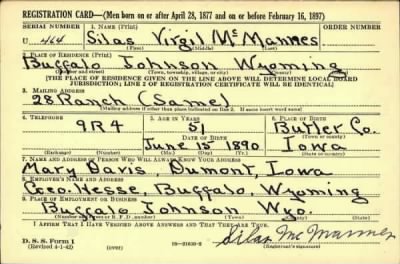 REGISTRATION CARD—(Men born on or after April 28, 1877 and on or before February 16, 1897)
SERIAL NUMBER 1. NAME (Print) ORDER NUMBER
U 464 Silas Virgil McMannes
(First) (Middle) (Last)
2. PLACE OF RESIDENCE (Print)
Buffalo Johnson Wyoming
(Number and street) (Town, township, village, or city) (County) (State)
[THE PLACE OF RESIDENCE GIVEN ON THE LINE ABOVE WILL DETERMINE LOCAL BOARD
JURISDICTION; LINE 2 OF REGISTRATION CERTIFICATE WILL BE IDENTICAL]
3. MAILING ADDRESS
28 Ranch (Same)
[Mailing address if other than place indicated on line 2. If same insert word same]
4. TELEPHONE 5. AGE IN YEARS 6. PLACE OF BIRTH
9R4 51 Butler Co.
DATE OF BIRTH (Town or county)
June 15 1890 Iowa
(Exchange) (Number) (Mo.) (Day) (Yr.) (State or country)
7. NAME AND ADDRESS OF PERSON WHO WILL ALWAYS KNOW YOUR ADDRESS
Mary Davis, Dumont, Iowa
8. EMPLOYER'S NAME AND ADDRESS
Geo. Hesse, Buffalo, Wyoming
9. PLACE OF EMPLOYMENT OR BUSINESS
Buffalo Johnson Wyo.
(Number and street or R. F. D. number) (Town) (County) (State)
I AFFIRM THAT I HAVE VERIFIED ABOVE ANSWERS AND THAT THEY ARE TRUE.
D. S. S. Form 1
(Revised 4-1-42) (over) 16—21630-2
Silas McMannes
(Registrant's signature)